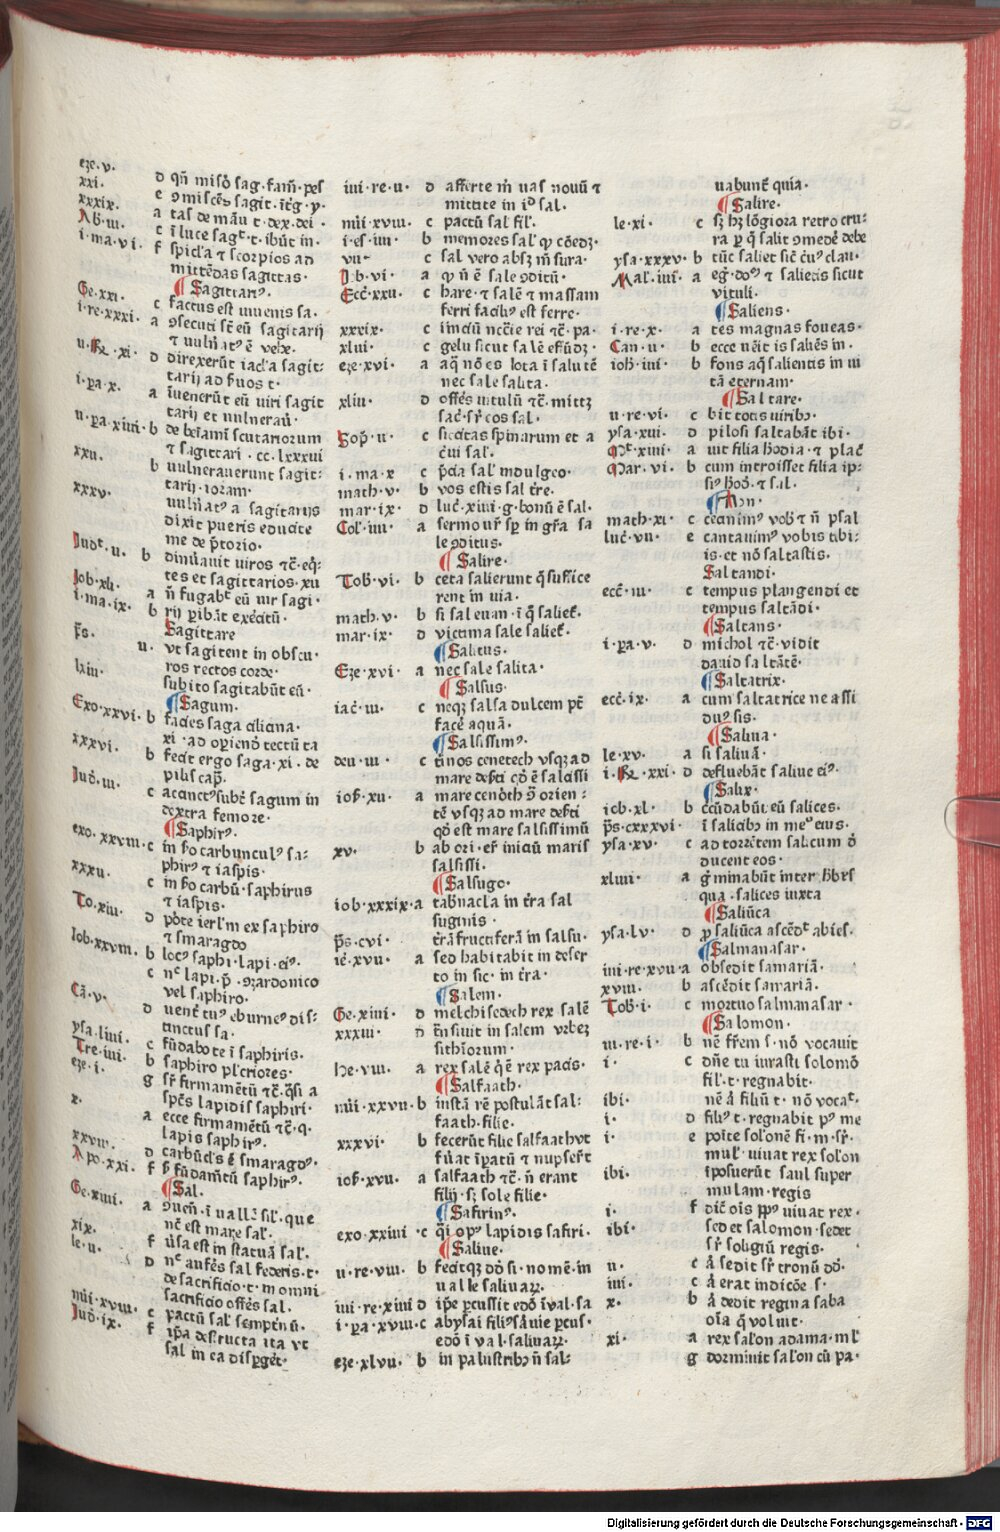 eze·v· d qñ misõ sag·fam̄·pes
xxi· e ꝯmiscēs sagit·īt̄g·y·
xxxix· a tas de mãu t·dex·dei·
Ab·iii· c ī luce sagᵗ·t·ibūt in·
i·ma·vi· f spicl'a ⁊ scorpios ad
mittēdas sagittas·
¶ Sagittariꝰ·
Ge·xxi· c factus est iuuenis sa·
i·re·xxxi· a ꝯsecuti sēt eū sagitarij
⁊ uulñatꝰ ē vehe·
u·Re·xi· d direxerūt iacl'a sagit:
tarij ad ẜuos t·
i·pa·x· a īuenerūt eū uiri sagit
tarij et uulneraū·
u·pa·xiiii·b de bēiamī scutariorum
⁊ sagittari·cc·lxxxui
xxu· b uulnerauerunt sagit:
tarij·ioram·
xxxv· uulñatꝰ a sagitarijs
dixit pueris educite
me de p̄lio·
Judᵗ·u· b dinūauit uiros ⁊c̄·eq̄:
tes et sagittarios·xu
Job·xli· a ñ fugabᵗ eū uir sagi·
i·ma·ix· b rij pibāt exēcitū·
Sagittare
p̄s· u· vt sagitent in obscu·
ros rectos corde·
lxiii· subito sagitabūt eū·
¶ Sagum·
Exo·xxvi·b facies saga ciliana·
xi·ad opiendō tectū ta
xxxvi· b fecit ergo saga·xi·de
pilis cap̄·
Jud̄·iii· c accinctꝰ subē sagum in
dextra femore·
¶ Saphirꝰ·
exo·xxviii·c in ẜo carbunculꝰ sa:
phirꝰ ⁊ iaspis·
xxxu· c in ẜo carbū·saphirus
⁊ iaspis·
To·xiii· d pōte ierl'm ex saphiro
⁊ smaragdo
Iob·xxviii· b locꝰ saphi·lapi·eiꝰ·
c nᶜ lapi·p̄·sardonico
vel saphiro·
Cā·v· d uent tuꝰ eburneꝰ dis:
tinctus sa·
ysa·liiii· c fūdabo te ī saphiris·
Tre·iiii· b saphiro pl'criores·
eze·i· g sr̄ firmamētū ⁊c̄·q̄si a
sp̄es lapidis saphiri·
x· a ecce firmamētū ⁊c̄·q·
lapis saphirꝰ·
xxviii· d carbūcl's & smaragdꝰ·
Apo·xxi· f p̄ fūdam̄tū saphirꝰ·
¶ Sal·
Ge·xiiii· a ꝯuen̄·ī uall'ē sil'·que
nc̄ est mare sal'·
xix· f ūsa est in statuā sal'·
le·u· d nᶜ aufēs sal federis·t·
de sacrificio·t·m omni
sacrificio offēs sal·
nūi·xviii· c pactū sal' sempt̄nū·
Jud̄·ix· f ip̄a destructa ita vt
sal in ea dispget̄·
iiii·re·u· d afferte m̄ uas nouū ⁊
mittite in iᵈ sal·
nūi·xviii· c pactū sal' fil'·
i·es·iiii· b memores sal' qꝫ cōedꝫ·
vii· c sal vero absꝫ m̄sura·
Jb·vi· a qꝫ ñ ē sale ꝯditū·
Ecc̄·xxii· c hare·⁊ salē ⁊ massam
ferri faciliꝰ est ferre·
xxxix· c īniciū nccie rei ⁊c̄·pa·
xlui· c gelu sicut salē efūdꝫ·
eze·xvi· a aq̄ nō es lota ī salutē
nec sale salita·
xliii· d offēs uitulū ⁊c̄·mittꝫ
sac̄·sr̄ cos sal·
Sop̄·ii· c siccitas spinarum et a
c̄ui sal'·
i·ma·x c p̄cia sal' indulgeo·
math·v· b vos estis sal tr̄e·
mar·ix· d luc̄·xiiii·g·bonū ē sal·
Col'·iiii· a sermo ur̄ sp̄ in gr̄a sa
le ꝯditus·
¶ Salire·
Tob·vi· b ceta salierunt q̄ suffice
rent in uia·
math·v· b si sal euan·ī q̄ saliet̄·
mar·ix· d victima sale saliet̄·
¶ Salitus·
Eze·xvi· a nec sale salita·
¶ Salsus·
iac̄·iii· c neqꝫ salsa dulcem pt̄
facē aquā·
¶ Salsissimꝰ·
deu·iii· c t̄inos cenetech vsqꝫ ad
mare deẜti qō ē salcissi
ioẜ·xu· a mare cenōth ꝯ̄ orien:
tē vsqꝫ ad mare deẜti
qō est mare salsissimū
xv· b ab ori·er̄ iniciū maris
salsissi·
¶ Salsugo·
iob·xxxix·a tab̄nacla in t̄ra sal
suginis·
p̄s·cvi· t̄rā fructiferā in salsu·
ie·xvu· a sed habitabit in deser
to in sic·in t̄ra·
¶ Salem·
Ge·xiiii· d melchisedech rex salē
xxxiii· d t̄nsiuit in salem vrbeꝫ
sithiorum·
he·vii· a rex salē q̄ ē rex pacis·
¶ Salfaath·
nūi·xxvii·b iustā rē postulāt sal:
faath·filie·
xxxvi· b fecerūt filie salfaath vt
fūat īpatū ⁊ nupser̄t
ioẜ·xvu· a salfaath ⁊c̄·ñ erant
filij·sꝫ sole filie·
¶ Safirinꝰ·
exo·xxiiii·c q̄i opꝰ lapidis safiri·
¶ Saline·
u·re·viii· b fecitqꝫ dō si·nomē·in
ualle salinaꝝ·
iiii·re·xiiii d ip̄e pcussit edō ī val·sa
i·pa·xviii·c abysai filiꝰ saruie pcus·
edō ī val·salinaꝝ·
eze·xlvu· b in palustribꝫ ñ sal:
uabunt̄ quia·
¶ Salire·
le·xi· c sꝫ hꝫ lōgiora retro cru:
ra p q̄ salit ꝯmedē debe
ysa·xxxv· b tūc saliet sic̄ c̄uꝰ clau·
Mal'·iiii· a eg̃·dōⁱ ⁊ salietis sicut
vituli·
¶ Saliens·
i·re·x· a tes magnas foueas·
Can·u· b ecce uēit is saliēs in·
ioh̄·iiii· b fons aq̄ salientis in ui
tā eternam·
¶ Saltare·
u·re·vi· c bit totis uiribꝫ·
ysa·xiii· d pilosi saltabāt ibi·
Mᵗ·xiiii· a uit filia h̄odia·⁊ plac̄
Mar·vi· b cum introisset filia ip:
siꝰ h̄od̄·⁊ sal·
¶ Aōn·
math·xi· c cecinimꝰ vob̄ ⁊ ñ psal
luc̄·vii· e cantauimꝰ vobis tibi:
is·et nō saltastis·
Saltandi·
ecc̄·iii· c tempus plangendi et
tempus saltādi·
¶ Saltans·
i·pa·v· d michol ⁊c̄·vidit
dauid saltātē·
¶ Saltatrix·
ecc̄·ix· a cum saltatrice ne assi
duꝰ sis·
¶ Saliua·
le·xv· a si saliuā·
i·Re·xxi· d defluebāt saliue eiꝰ·
¶ Salix·
iob·xl· b ccūdabūt eū salices·
p̄s·cxxxvi· ī salicibꝫ in meᵒ eius·
ysa·xv· c ad torrētem salicum d̄
ducent eos·
xliiii· a g̃minabūt inter h̄brs
qua·salices iuxta
¶ Saliūca
ysa·lv· d p saliūca ascēdᵗ abies·
¶ Salmanasar·
iiii·re·xvu·a obsedit samariā·
xviii· b ascēdit samariā·
Tob·i· c mortuo salmanasar·
¶ Salomon·
iii·re·i· b nē fr̄em s·nō vocauit
i· c dn̄e tu iurasti solomō
fil'·t·regnabit·
ibi· nē á filiū t·nō vocaᵗ·
i· d filiꝰ t·regnabit pꝰ me
i· e poīte solonē fi·m·sr̄·
mul'·uiuat rex solon
ibi· īposuerūt saul super
mulam·regis
i· f dic̄t oīs ppꝰ uiuat rex·
ibi· sed et salomon·sedet
sr̄ soligiū regis·
ii· c á sedit sr̄ tronū dō·
iiii· c á erat in dicōe s·
x· b á dedit regina saba
oīa q̄ voluit·
xi· a rex sal'on adama·ml'
g dormiuit sal'on cū pa·
Digitalisierung gefördert durch die Deutsche Forschungsgemeinschaft - DFG